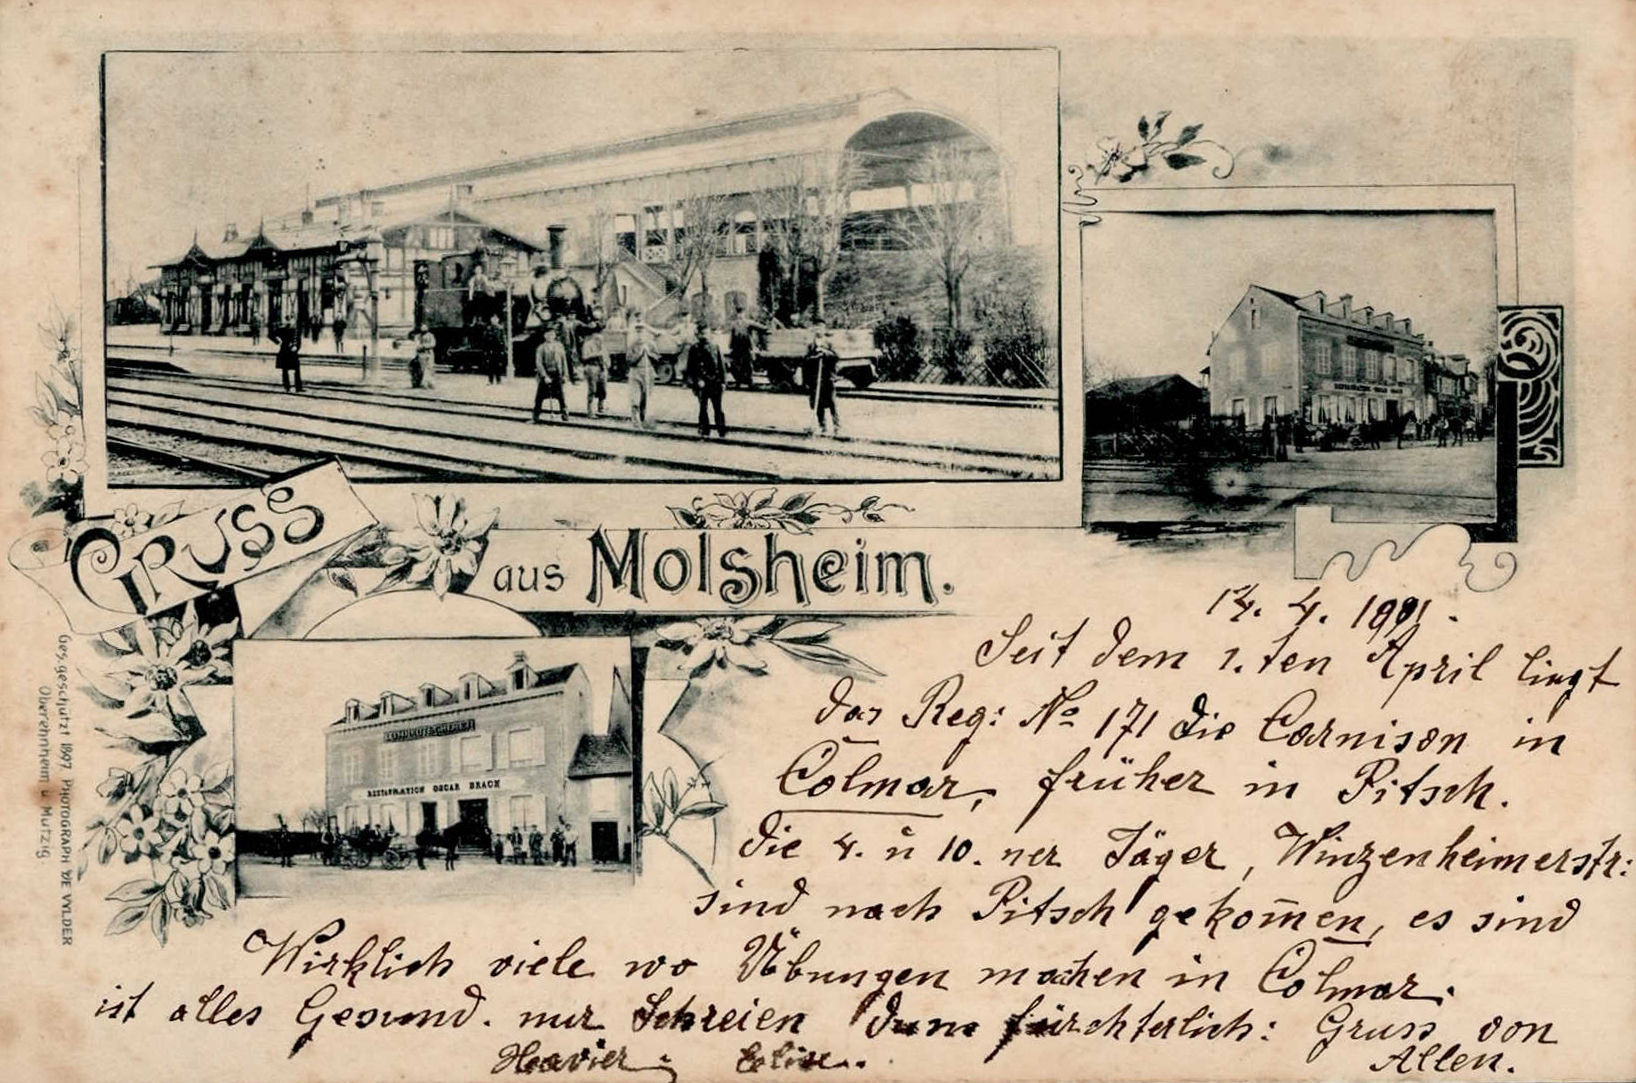 GRUSS
aus Molsheim.
RESTAURATION OSCAR BRACH
Ges. geschützt 1897 PHOTOGRAPH DE VYLDER
Oberehnheim u. Mutzig
14. 4. 1901.
Seit dem 1. ten April liegt
das Reg: No 171 die Carnison in
Colmar, früher in Pitsch.
die 4. u 10. ner Jäger, Winzenheimerstr:
sind nach Pitsch gekom̄en, es sind
Wirklich viele wo Übungen machen in Colmar.
ist alles Gesund. nur Schreien fürchterlich: Gruss von
Allen.